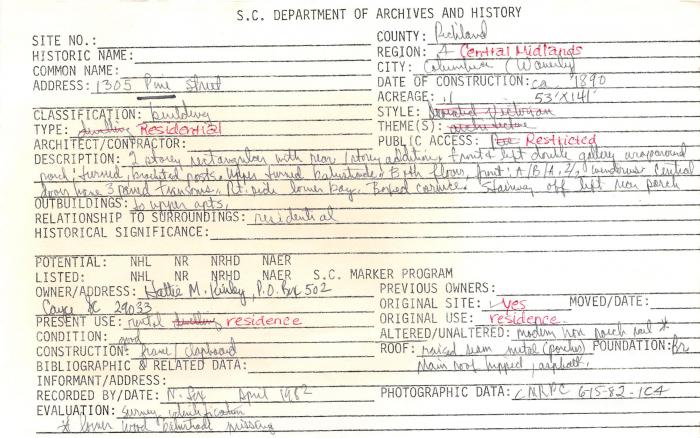 S.C. DEPARTMENT OF ARCHIVES AND HISTORY
SITE NO.: COUNTY: Richland
HISTORIC NAME: REGION: 4 Central Midlands
COMMON NAME: CITY: Columbia (Waverly)
ADDRESS: 1305 Pine Street DATE OF CONSTRUCTION: ca. 1890
ACREAGE: .1 53'X141'
CLASSIFICATION: building STYLE: Victorian
TYPE: dwelling Residential THEME(S): architecture
ARCHITECT/CONTRACTOR: PUBLIC ACCESS: Restricted
DESCRIPTION: 2 story rectangular with rear 1 story addition. Front & left double gallery wraparound
porch: turned, bracketed posts. Upper turned balustrade. Both floors, front: A/B/A, 2/2 windows. Central
doors have 3 paned transoms. Rt. side lower bay. Boxed cornice. Stairway off left rear porch
OUTBUILDINGS: to upper apts.
RELATIONSHIP TO SURROUNDINGS: residential
HISTORICAL SIGNIFICANCE:
POTENTIAL: NHL NR NRHD NAER
LISTED: NHL NR NRHD NAER S.C. MARKER PROGRAM
OWNER/ADDRESS: Hattie M. , P.O. Box 502 PREVIOUS OWNERS:
Cayce SC 29033 ORIGINAL SITE: yes MOVED/DATE:
PRESENT USE: rental dwelling residence ORIGINAL USE: residence
CONDITION: good ALTERED/UNALTERED: modern iron porch rail *
CONSTRUCTION: frame/clapboard ROOF: raised seam metal (porches) FOUNDATION: Br
BIBLIOGRAPHIC & RELATED DATA: Main roof hipped, asphalt.
INFORMANT/ADDRESS:
RECORDED BY/DATE: N. Fox April 1982 PHOTOGRAPHIC DATA: CMRPC 615-82-1C4
EVALUATION: survey identification
* lower wood balustrade missing